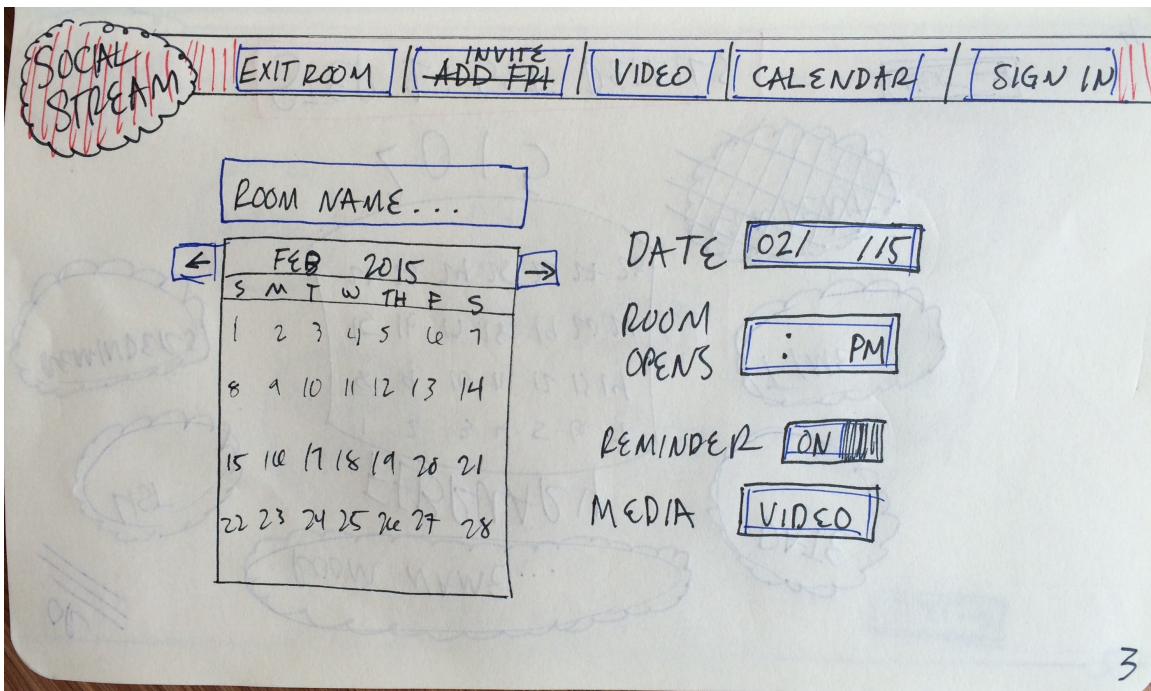 SOCIAL
STREAM
EXIT ROOM
INVITE
ADD FRI
VIDEO
CALENDAR
SIGN IN
ROOM NAME...
←
FEB 2015
→
S M T W TH F S
1 2 3 4 5 6 7
8 9 10 11 12 13 14
15 16 17 18 19 20 21
22 23 24 25 26 27 28
DATE 02/ /15
ROOM
OPENS : PM
REMINDER ON
MEDIA VIDEO
3